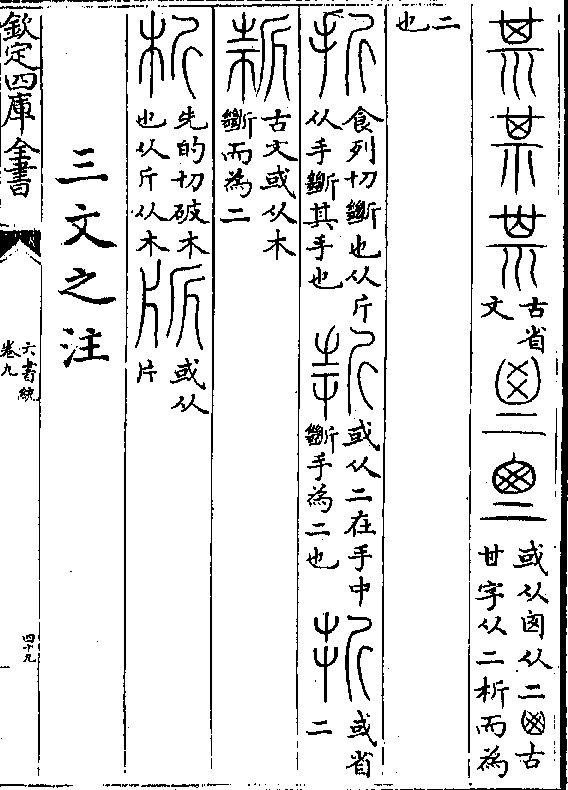 古省文
或从从二古甘字从二析而為
二也
折食列切斷也从斤从手斷其手也
或从二在手中斷手為二也
或省二
古文或从木斷而為二
析先的切破木也从斤从木
或从片
三文之注
欽定四庫全書
六書統
卷九
四十九